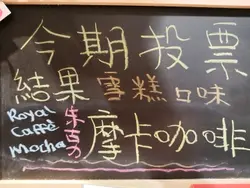 今期投票
結果 雪糕口味
Royal
Caffè
Mocha
朱古力
摩卡咖啡